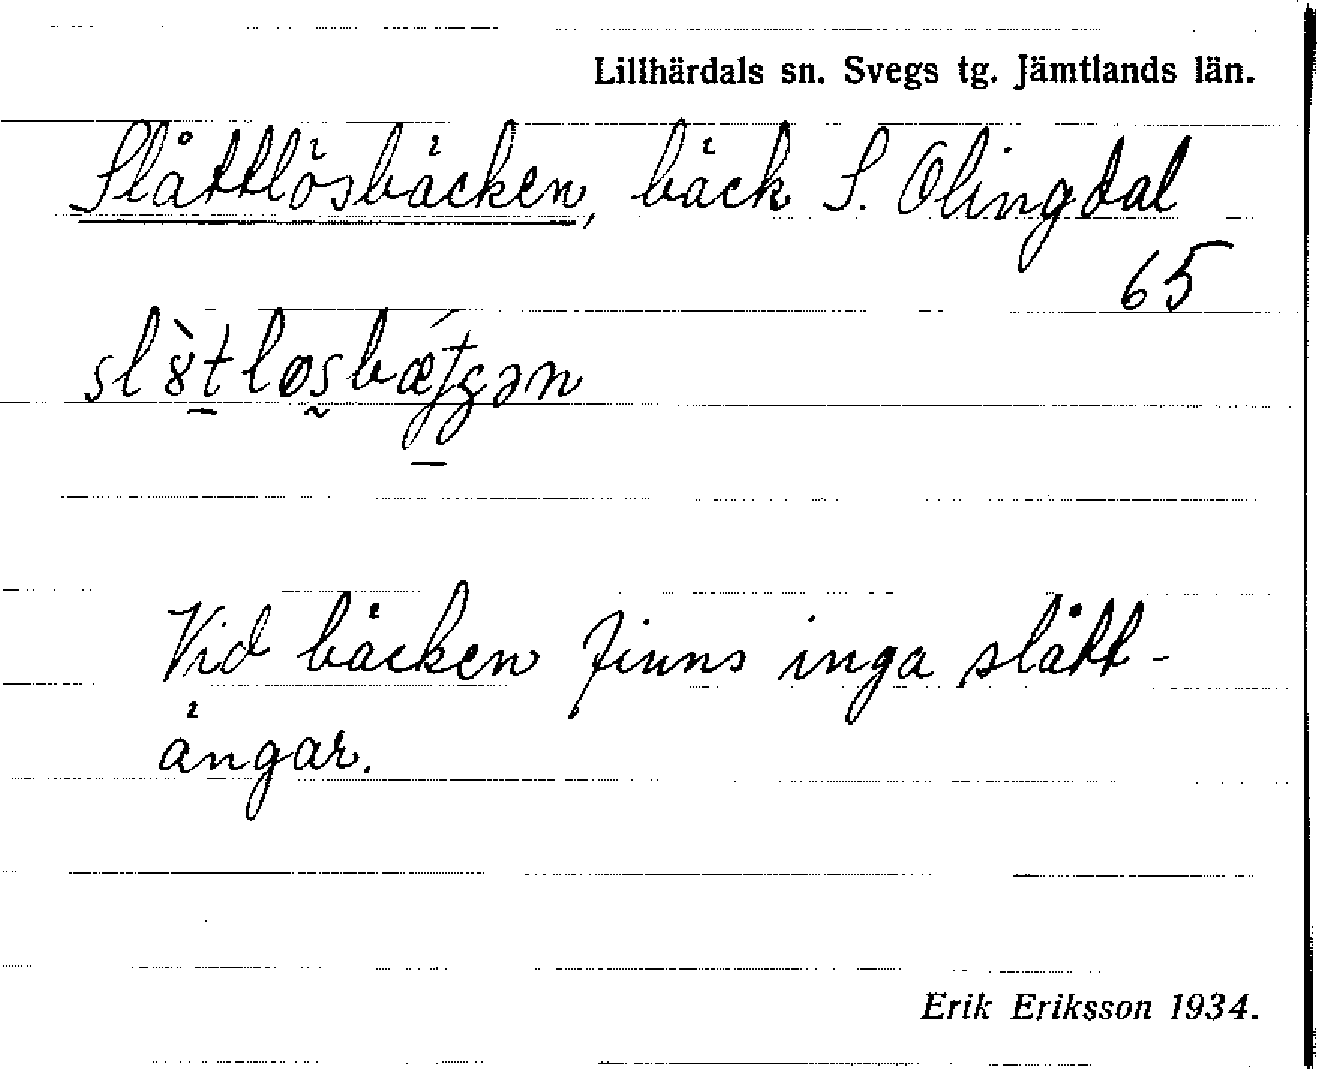 Lillhärdals sn. Svegs tg. Jämtlands län.
Slåttlösbäcken, bäck S. Olingdal
65
Vid bäcken finns inga slått-
ängar.
Erik Eriksson 1934.